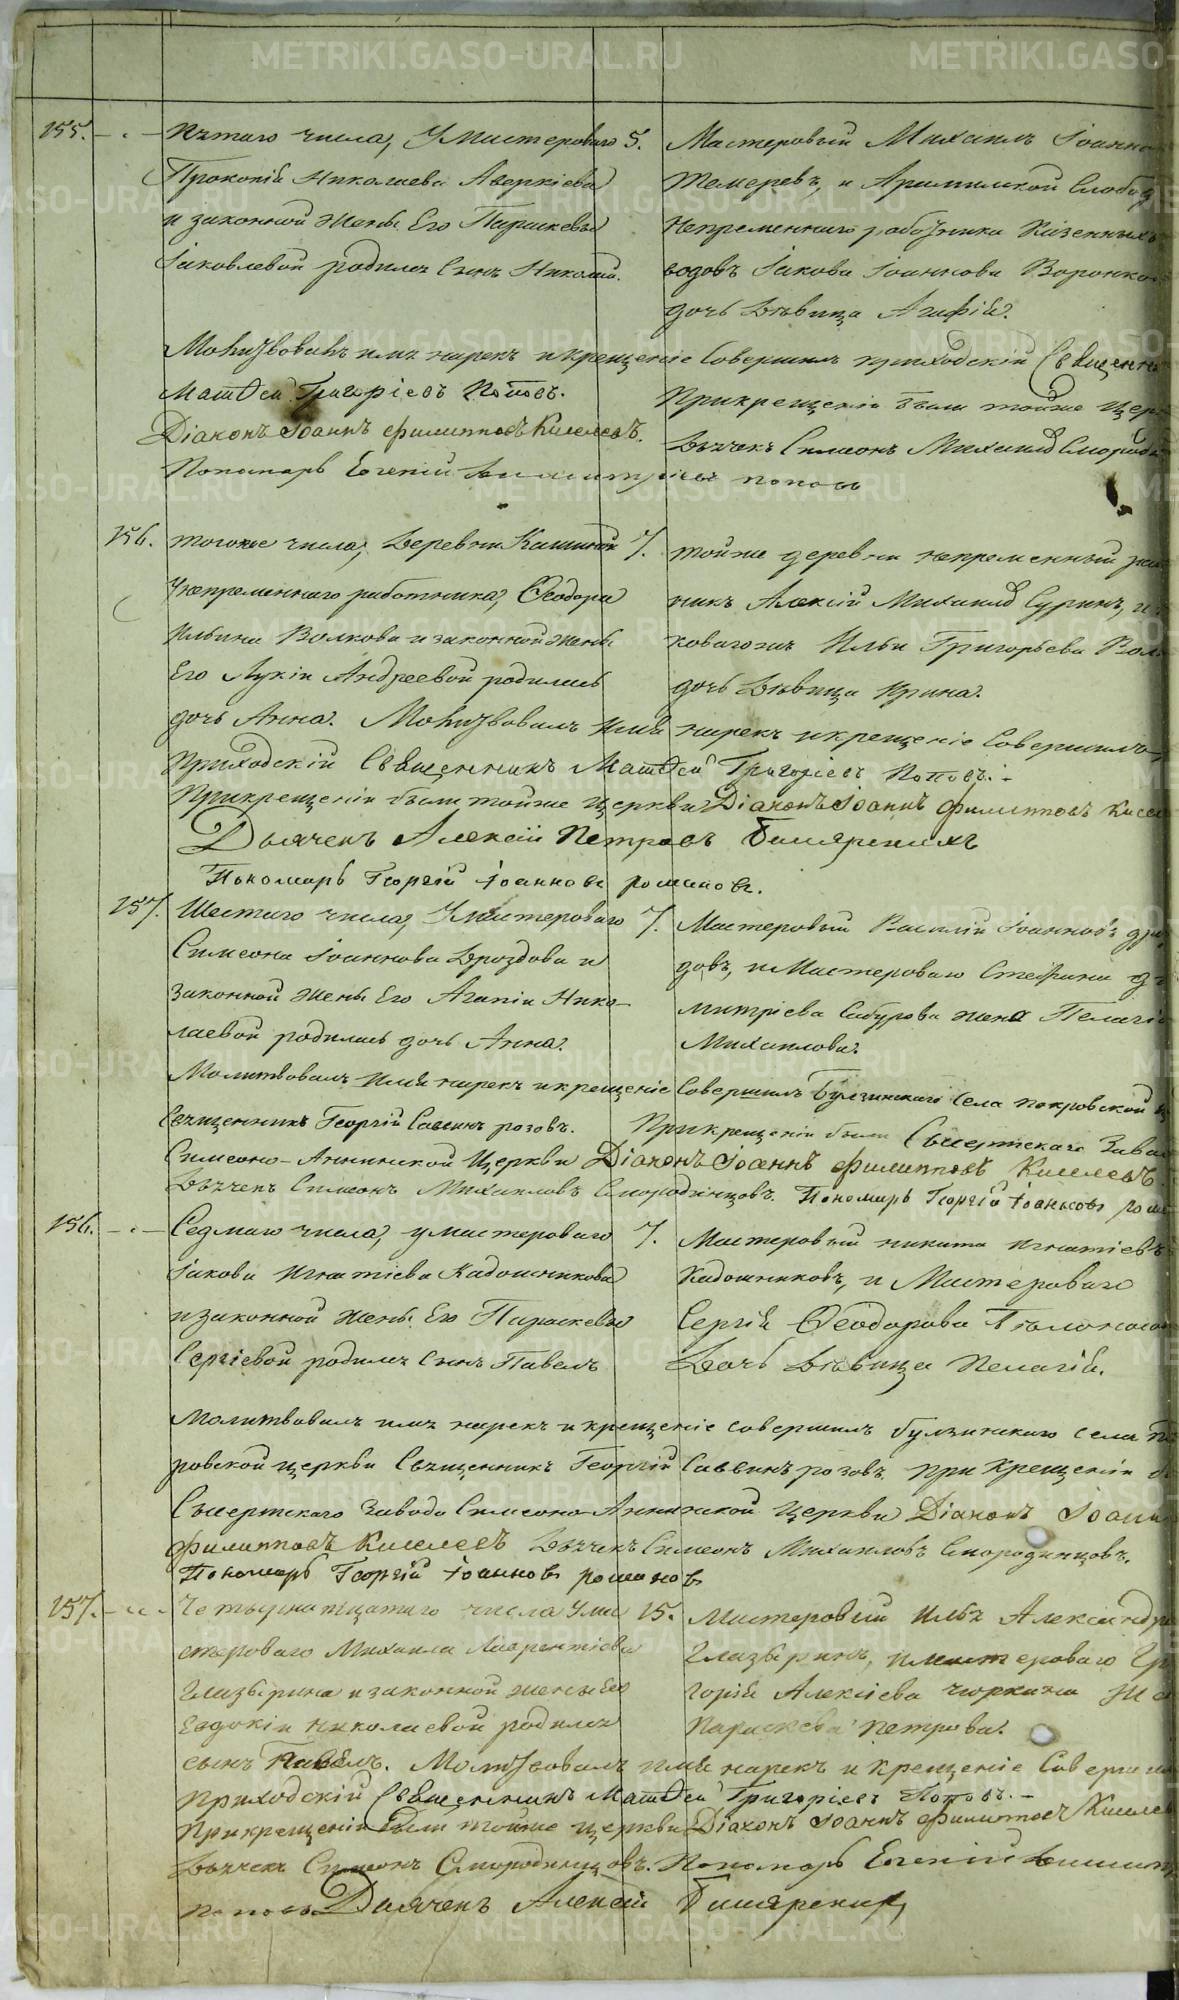 155.
Пятаго числа, У мастероваго 5.
Прокопія Николаева Аверкіева
и законной жены Его Параскевы
Іаковлевой родился Сынъ Николай.
Мастеровый Михаилъ Іоанно
Темеревъ, и Арамильской Слобод
Непременнаго работника Казенныхъ
водовъ Іакова Іоаннова Воронко
дочь Дѣвица Агафія.
Молитвовалъ имя нарекъ и крещеніе Совершилъ приходскій Священни
Матѳей Григоріевъ Поповъ.
При крещеніи были тойже Цер
Діаконъ Іоаннъ Филипповъ Киселевъ.
Дьячекъ Симеонъ Михаилов Смороди
Пономарь Евгеній поповъ
156.
тогоже числа, Деревни Кашиной 7.
У непременнаго работника, Ѳеодора
Ильина Волкова и законной жены
Его Лукіи Андреевой родилась
дочь Анна.
тойже деревни непременный ра
никъ Алексій Михаилов Суринъ, и
коваго жъ Ильи Григорьева Вол
дочь Дѣвица Ирина.
Молитвовалъ имя нарекъ и крещеніе Совершилъ
приходскій Священникъ Матѳей Григоріевъ Поповъ.
При крещеніи были тойже церкви Діаконъ Іоаннъ Филипповъ Кисел
Дьячекъ Алексій Петровъ Билярскихъ
Пономарь Георгій Іоанновъ романовъ.
157.
Шестаго числа, У мастероваго 7.
Симеона Іоаннова Дроздова и
законной жены Его Агапіи Нико-
лаевой родилась дочь Анна.
Мастеровый Василій Іоанновъ дро
довъ, и Мастероваго Стефана д
митріева Сабурова жена Пелагія
Михаилова.
Молитвовалъ имя нарекъ и крещеніе Совершилъ Булзинскаго села покровской ц
Священникъ Георгій Саввинъ розовъ. При крещеніи были Сысертскаго Заво
Симеоно-Аннинской Церкви Діаконъ Іоаннъ Филипповъ Киселевъ.
Дьячекъ Симеонъ Михаиловъ Смородинцовъ. Пономарь Георгій Іоанновъ рома
156.
Седмаго числа, у мастероваго 7.
Іакова Игнатіева Кадошникова
и законной жены Его Параскевы
Сергіевой родился Сынъ Павелъ
Мастеровый никита игнатіевъ
Кадошниковъ, и Мастероваго
Сергія Ѳеодорова Бѣлоносо
Дочь Дѣвица Пелагія.
Молитвовалъ имя нарекъ и крещеніе совершилъ булзинскаго села по
ровской церкви Священникъ Георгій Саввинъ розовъ при крещеніи б
Сысертскаго Завода Симеоно-Аннинской церкви Діаконъ Іоанн
Филипповъ Киселевъ Дьячекъ Симеонъ Михаиловъ Смородинцовъ.
Пономарь Георгій Іоанновъ романовъ
157.
Четырнатцатаго числа У ма 15.
стероваго Михаила Лаврентіева
Глазырина и законной жены Его
Евдокіи николаевой родился
сынъ Павелъ.
Мастеровый Илья Александро
Глазыринъ, и мастероваго Гр
горія Алексіева чуркина Же
Параскева Петрова.
Молитвовалъ имя нарекъ и Крещеніе Соверши
приходскій Священникъ Матѳей Григоріевъ Поповъ.
При крещеніи были тойже церкви Діаконъ Іоаннъ Филипповъ Киселев
Дьячекъ Симеонъ Смородинцовъ. Пономарь Евгеній
поповъ Дьячекъ Алексій Билярских
METRIKI.GASO-URAL.RU